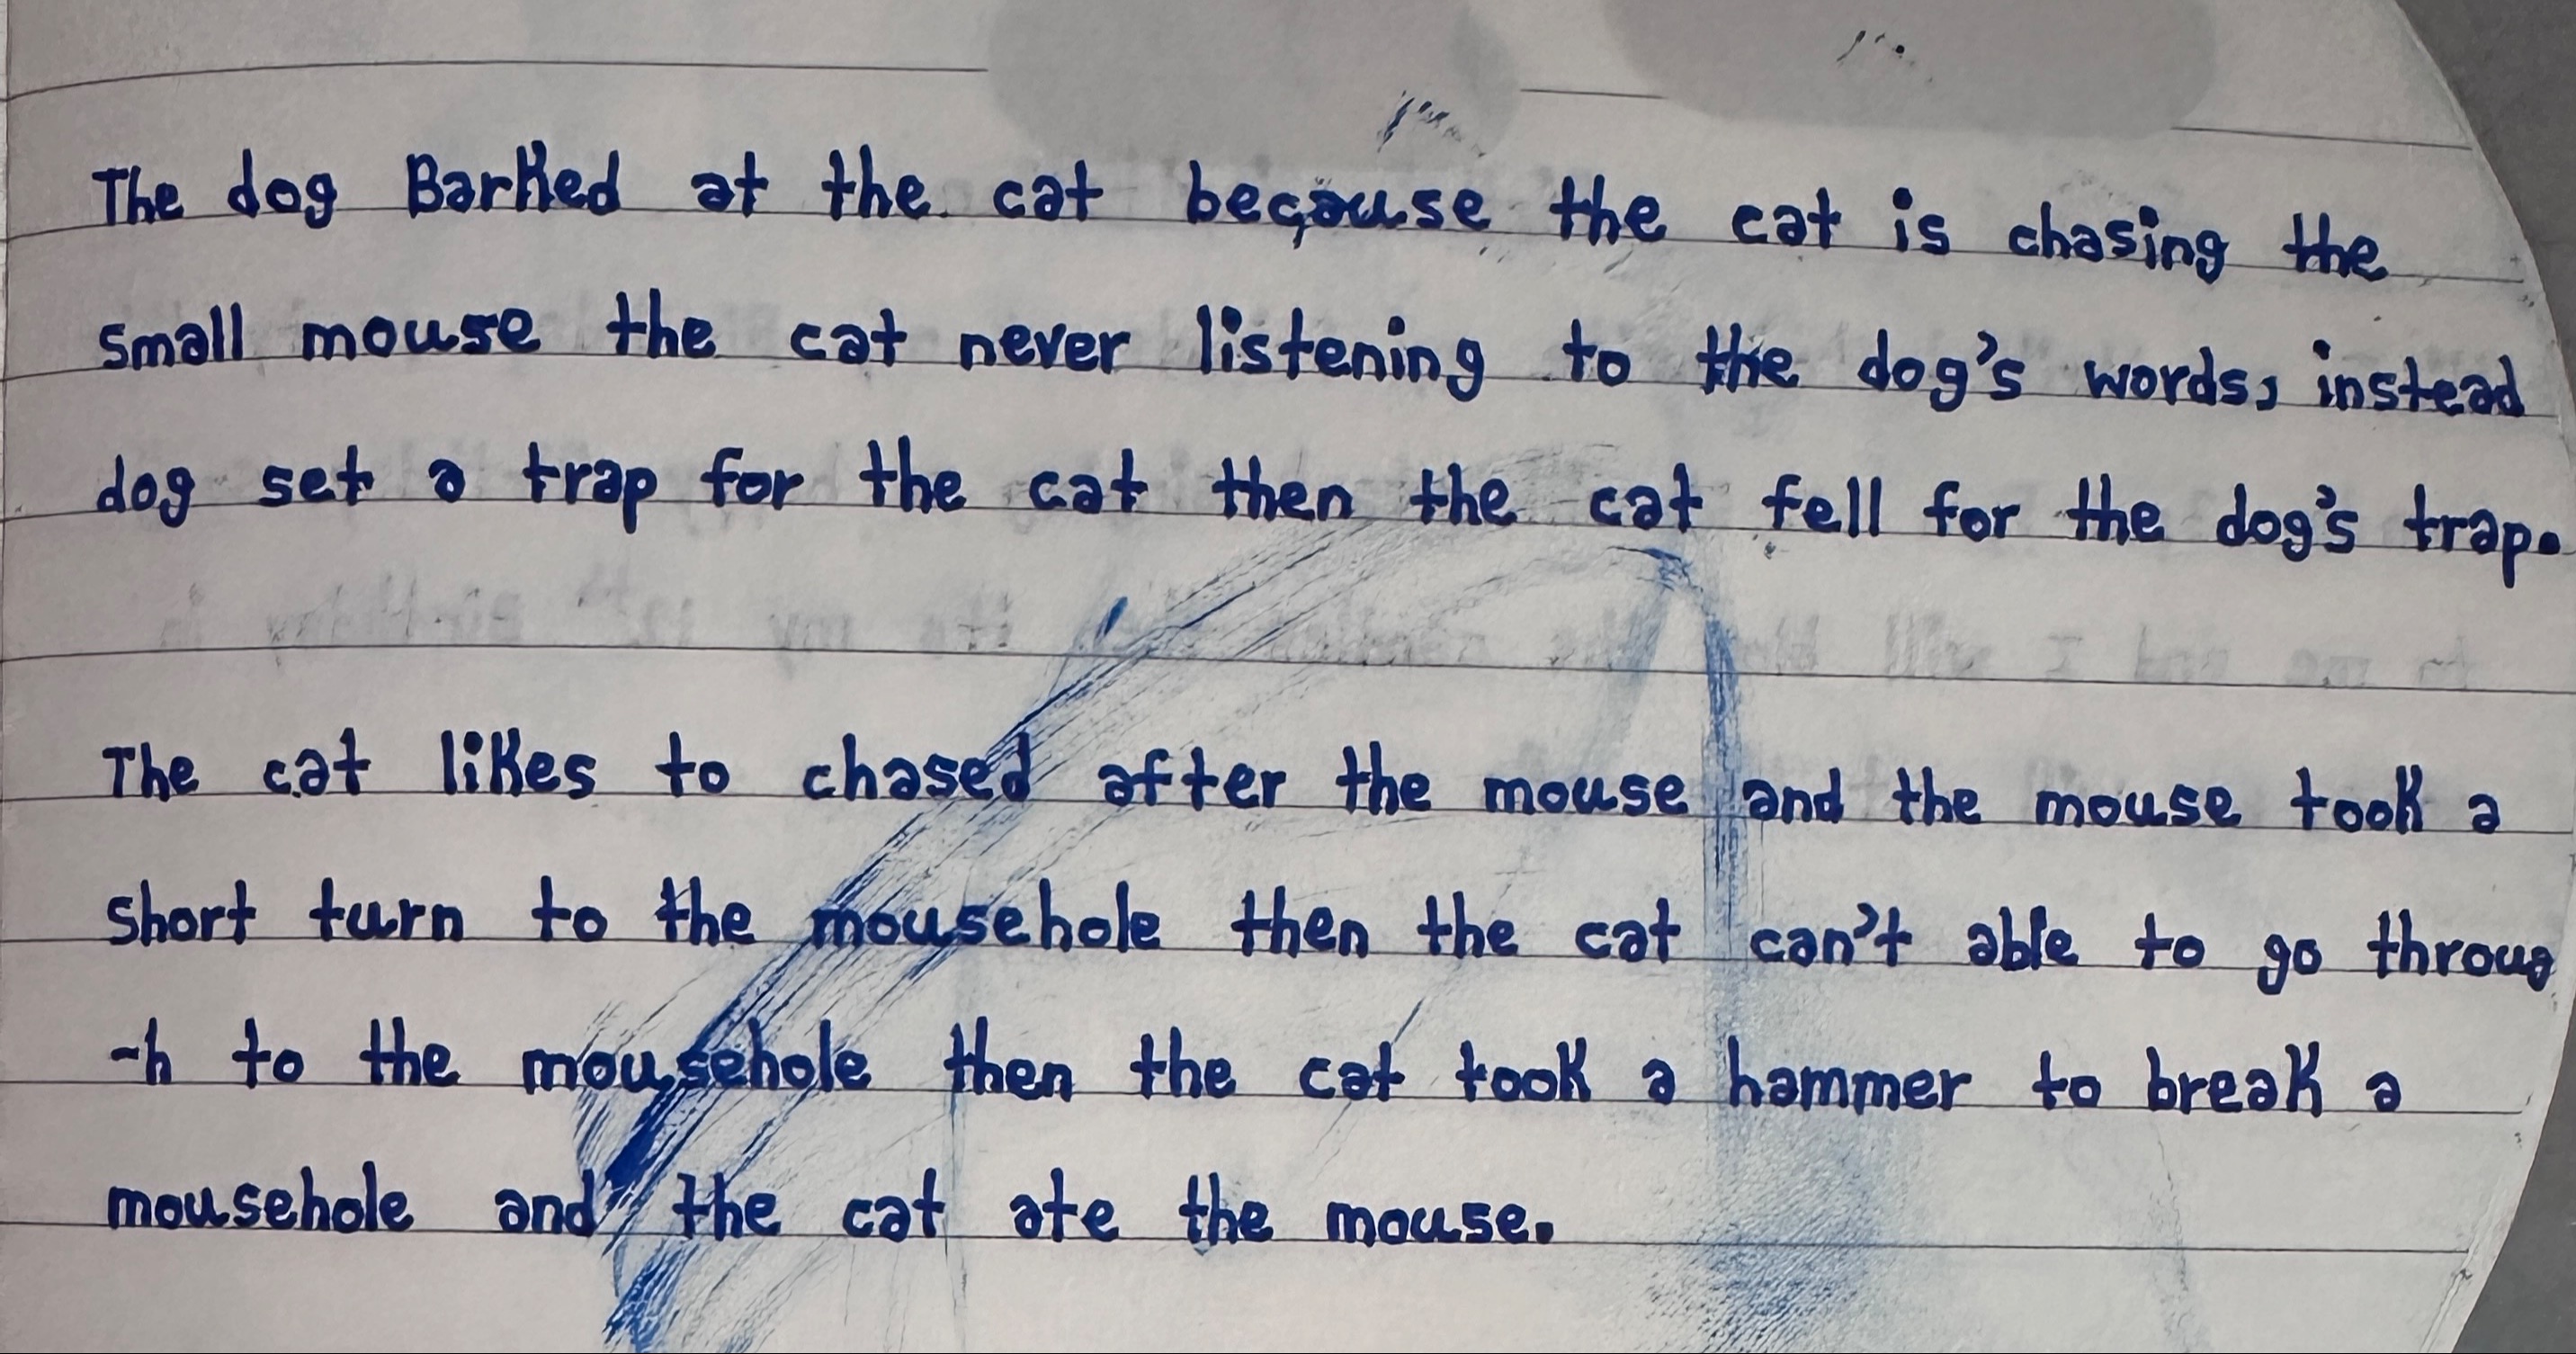 The dog Barked at the cat because the cat is chasing the
small mouse the cat never listening to the dog's words, instead
dog set a trap for the cat then the cat fell for the dog's trap.
The cat likes to chased after the mouse and the mouse took a
short turn to the mousehole then the cat can't able to go throug
-h to the mousehole then the cat took a hammer to break a
mousehole and the cat ate the mouse.